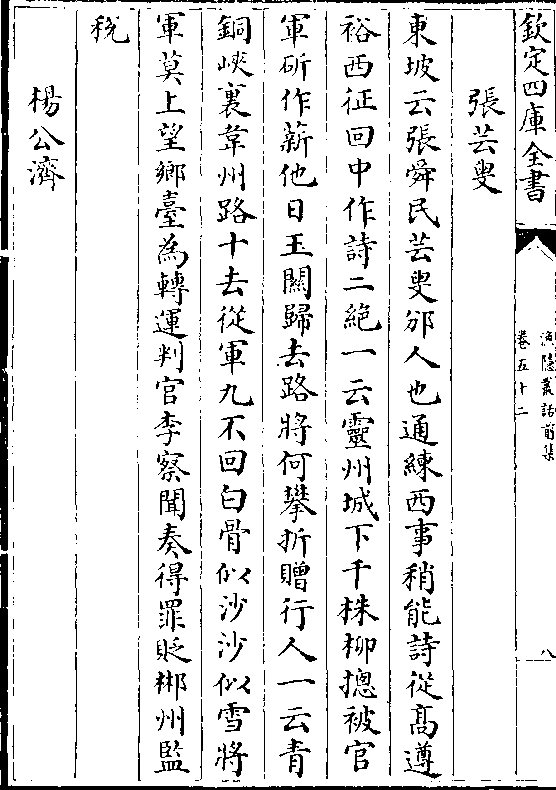 欽定四庫全書
漁隱叢話前集
卷五十二
八
張芸叟
東坡云張舜民芸叟邠人也通練西事稍能詩從高遵
裕西征回中作詩二絶一云靈州城下千株柳摠被官
軍斫作薪他日玉關歸去路將何攀折贈行人一云青
銅峽裏韋州路十去從軍九不回白骨似沙沙似雪將
軍莫上望鄉臺為轉運判官李察聞奏得罪貶郴州監
稅
楊公濟